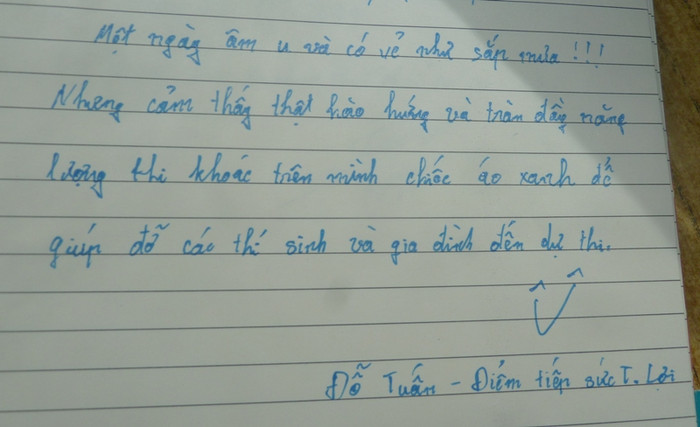 Một ngày âm u và có vẻ như sắp mưa!!!
Nhưng cảm thấy thật hào hứng và tràn đầy năng
lượng khi khoác trên mình chiếc áo xanh để
giúp đỡ các thí sinh và gia đình đến dự thi.
Đỗ Tuấn - Điểm tiếp sức T. Lợi